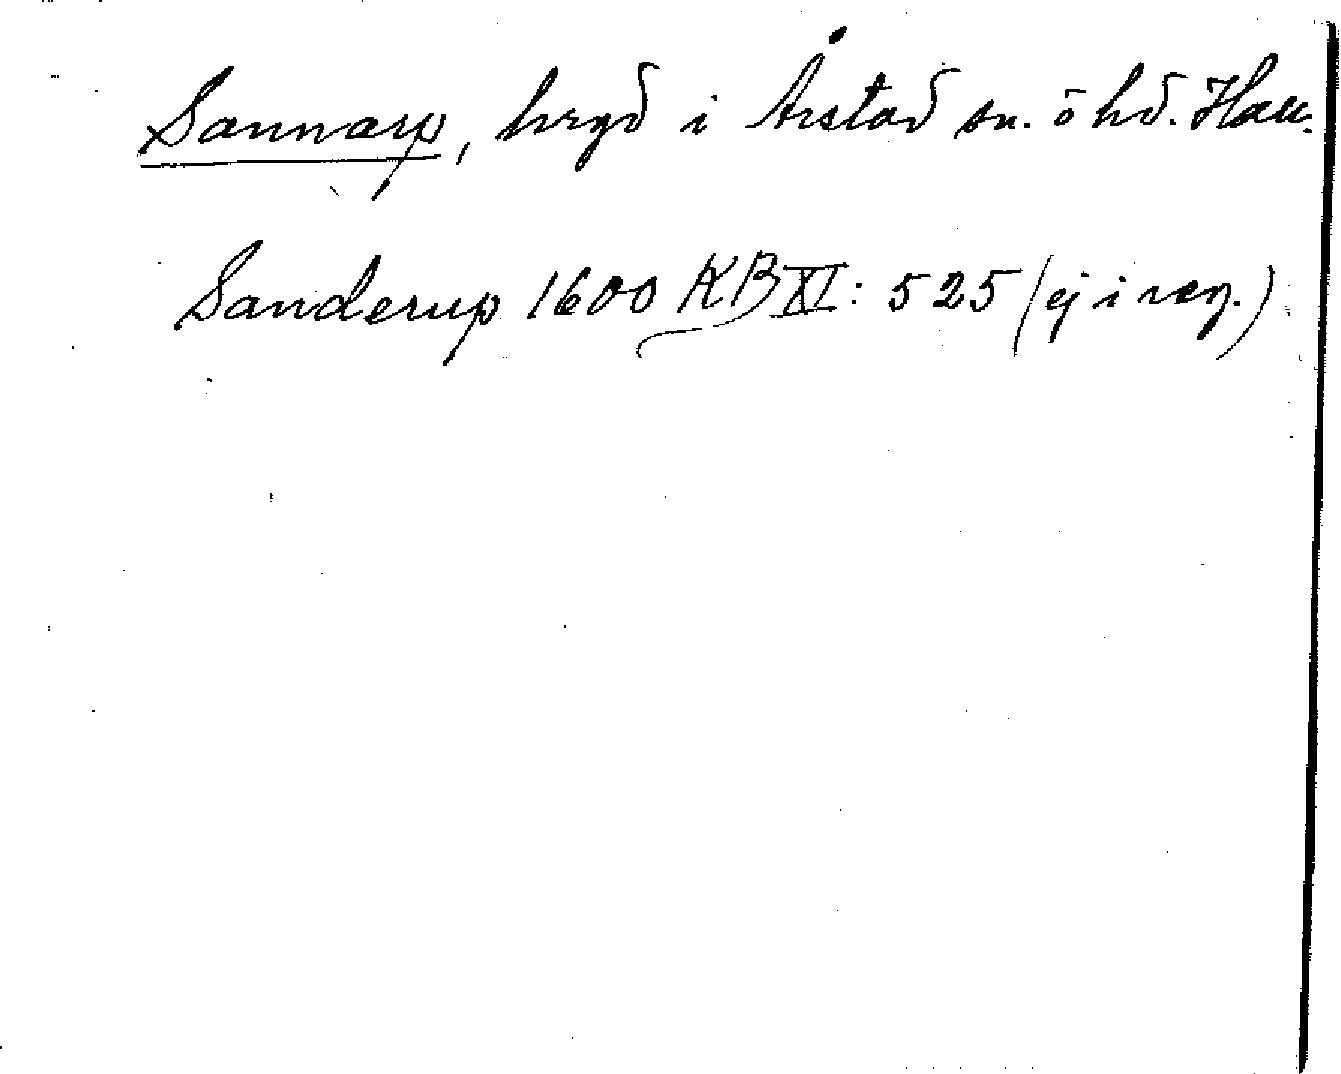 Sannarp, hrgd i Årstad sn. ö hd. Hall.
Sanderup 1600 KB XI: 525 (ej i reg.)